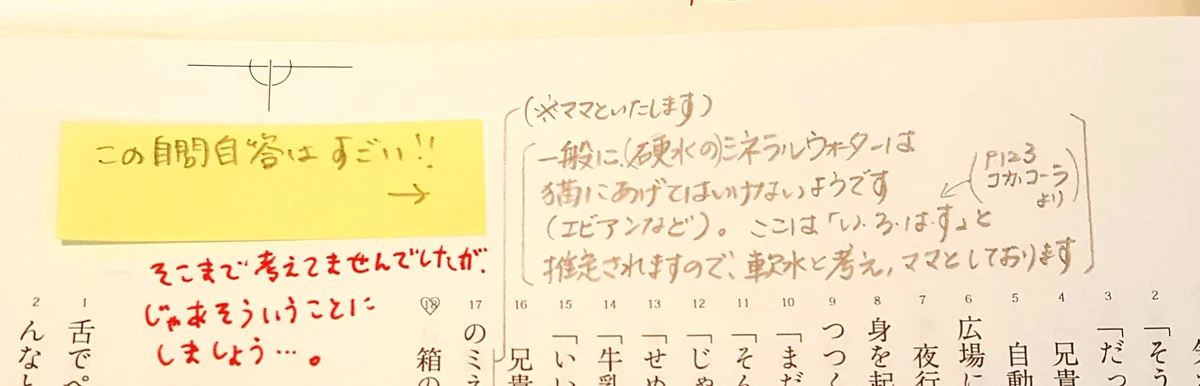 (※ママといたします)
一般に、(硬水の)ミネラルウォーターは
猫にあげてはいけないようです
(エビアンなど)。ここは「い・ろ・は・す」と
推定されますので、軟水と考え、ママとしております
(P123
コカ・コーラ
より)
この自問自答はすごい!!
→
そこまで考えてませんでしたが、
じゃあそういうことに
しましょう…。
2 「そう
3 「だっ
4 兄貴
5 自動
6 広場に
7 夜行
8 身を起
9 つつく
10 「まだ
11 「そん
12 「じゃ
13 「せめ
14 「牛乳
15 「いい
16 兄貴
17 のミネ
18 箱の
1 舌でペ
2 んなと